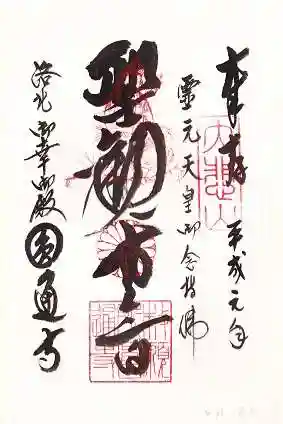 奉拝 平成元年
大悲山
靈元天皇御念持佛
聖観世音
洛北 御幸御殿 圓通寺